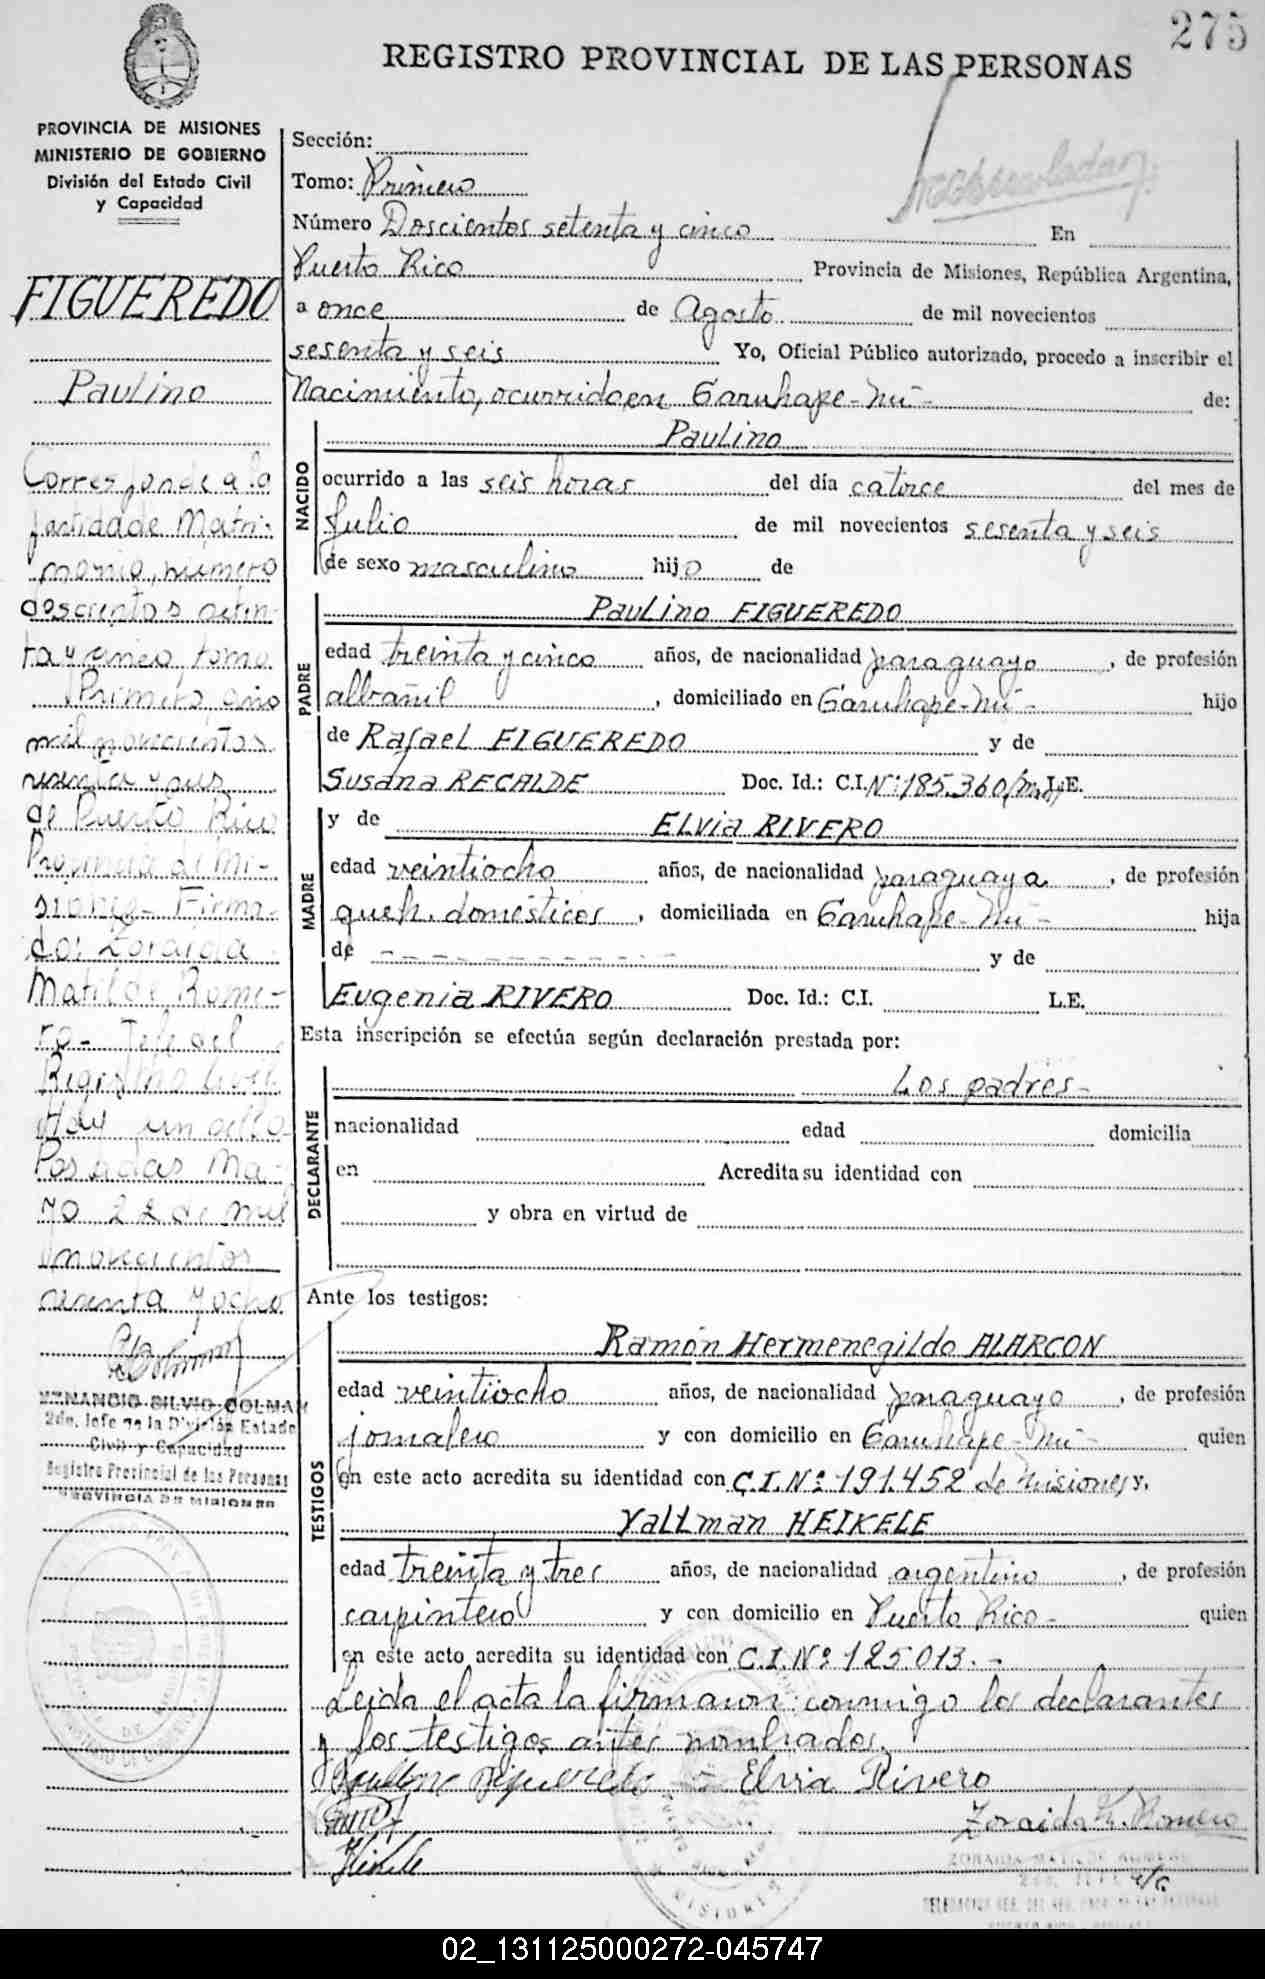 275
REGISTRO PROVINCIAL DE LAS PERSONAS
PROVINCIA DE MISIONES
MINISTERIO DE GOBIERNO
División del Estado Civil
y Capacidad
FIGUEREDO
Paulino
Corresponde a la
partida de Matri-
monio, número
doscientos
ta y cinco tomo
Primero, año
mil novecientos
sesenta y seis
de Puerto Rico
Provincia de Mi-
siones - Firma-
do: Zoraida
Matilde Rome-
ro - Jefe del
Registro Civil
Hay un sello
Posadas Ma-
yo 22 de mil
novecientos
sesenta y ocho
VENANCIO SILVIO COLMAN
2do. Jefe de la División Estado
Civil y Capacidad
Registro Provincial de las Personas
PROVINCIA DE MISIONES
Sección:
Tomo: Primero
Número Doscientos setenta y cinco En
Puerto Rico Provincia de Misiones, República Argentina,
a once de Agosto de mil novecientos
sesenta y seis Yo, Oficial Público autorizado, procedo a inscribir el
Nacimiento, ocurrido en Garuhape-mí- de:
NACIDO
Paulino
ocurrido a las seis horas del día catorce del mes de
Julio de mil novecientos sesenta y seis
de sexo masculino hijo de
PADRE
Paulino FIGUEREDO
edad treinta y cinco años, de nacionalidad paraguayo, de profesión
albañil, domiciliado en Garuhape-mí- hijo
de Rafael FIGUEREDO y de
Susana RECALDE Doc. Id.: C.I. Nº 185.360 L.E.
MADRE
y de Elvia RIVERO
edad veintiocho años, de nacionalidad paraguaya, de profesión
queh. domésticos, domiciliada en Garuhape-mí- hija
de - - - - - - - - - - y de
Eugenia RIVERO Doc. Id.: C.I. L.E.
Esta inscripción se efectúa según declaración prestada por:
DECLARANTE
Los padres-
nacionalidad edad domicilia
en Acredita su identidad con
y obra en virtud de
Ante los testigos:
TESTIGOS
Ramón Hermenegildo ALARCON
edad veintiocho años, de nacionalidad paraguayo, de profesión
jornalero y con domicilio en Garuhape-mí- quien
en este acto acredita su identidad con C.I. Nº 191.452 de Misiones y,
Vallman HEIKELE
edad treinta y tres años, de nacionalidad argentino, de profesión
carpintero y con domicilio en Puerto Rico- quien
en este acto acredita su identidad con C.I. Nº 125.013.-
Leida el acta la firmaron conmigo los declarantes
y los testigos antes nombrados.
Paulino Figueredo Elvia Rivero
Zoraida M. Romero
ZORAIDA MATILDE ROMERO
02_131125000272-045747